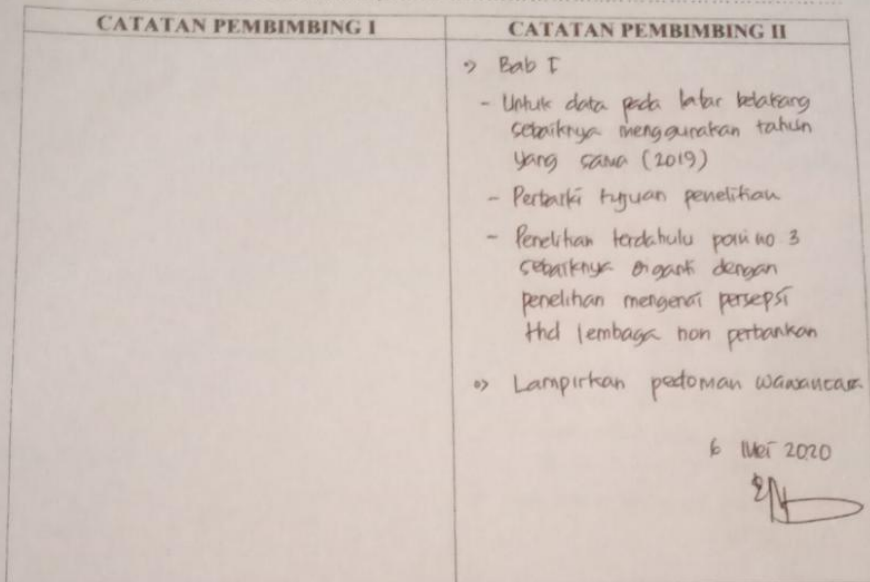 CATATAN PEMBIMBING I
CATATAN PEMBIMBING II
Bab I
- Untuk data pada latar belakang
sebaiknya menggunakan tahun
yang sama (2019)
- Perbaiki tujuan penelitian
- Penelitian terdahulu poin no 3
sebaiknya diganti dengan
penelitian mengenai persepsi
thd lembaga non perbankan
Lampirkan pedoman wawancara.
6 Mei 2020